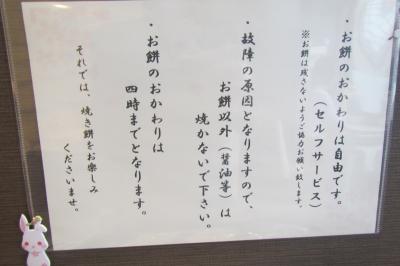 ・お餅のおかわりは自由です。
(セルフサービス)
※お餅は残さないようご協力お願い致します。
・故障の原因となりますので、
お餅以外(醤油等)は
焼かないで下さい。
・お餅のおかわりは
四時までとなります。
それでは、焼き餅をお楽しみ
くださいませ。